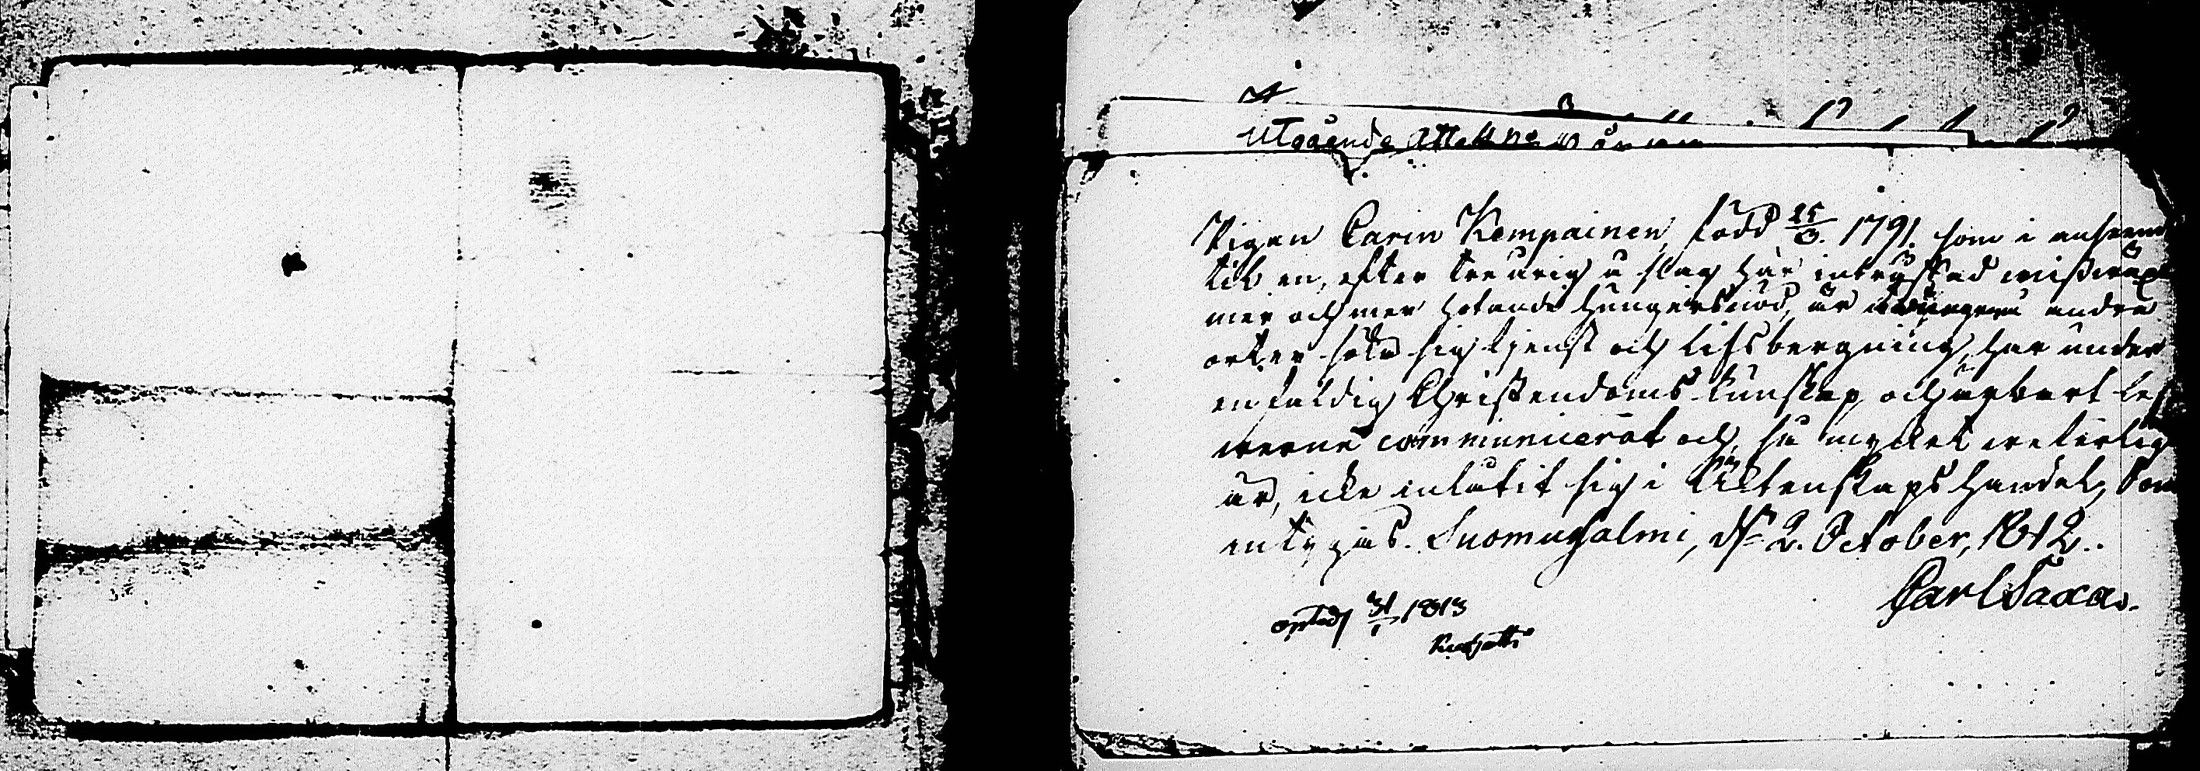 Utgående Attest
Pigan Carin Kempainen, född 25/3. 1791. som i anseende
til en, efter treårig u slag här intråffad missväxt
mer och mer hotande hungersnöd, är andra
orter söka sig tjenst och lifsbergning, har under
enfaldig Christendoms kunskap och ärbart lef
werne communicerat och, så mycket veterlig
är, icke inlåtit sig i Äktenskaps handel, Som
intygas. Suomusalmi, d. 2. October, 1812.
Carl Saxa
31/1 1813